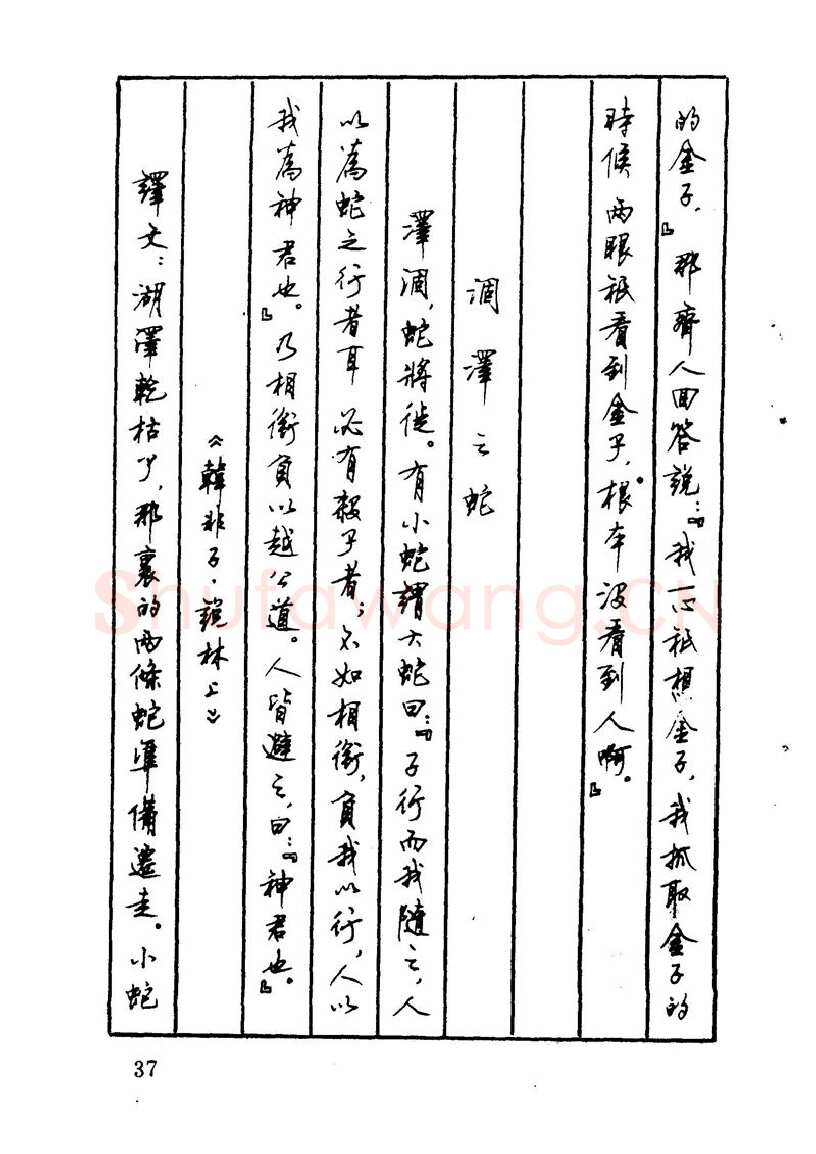 的金子。』那齊人回答說：『我心祇想金子，我抓取金子的
時候，兩眼祇看到金子，根本没看到人啊。』
涸澤之蛇
澤涸，蛇將徙。有小蛇謂大蛇曰：『子行而我隨之，人
以為蛇之行者耳，必有殺子者；不如相銜，負我以行，人以
我為神君也。』乃相銜負以越公道。人皆避之，曰：『神君也。』
《韓非子·說林上》
譯文：湖澤乾枯了，那裏的兩條蛇準備遷走。小蛇
37
Shufawang.CN